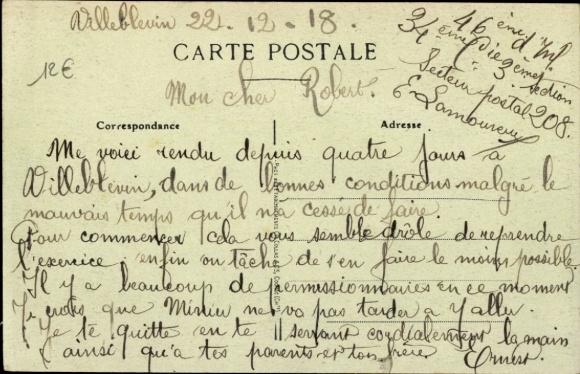 Villeblevin 22-12-18.
46ème d'M.
34ème Pie 3ème section
Secteur postal 208.
E Lamoureux
CARTE POSTALE
12€
Mon cher Robert.
Correspondance
Adresse
Me voici rendu depuis quatre jours à
Villeblevin, dans de bonnes conditions malgré le
mauvais temps qu'il n'a cessé de faire.
Pour commencer cela vous semble drôle de reprendre
l'exercice. enfin on tâche de s'en faire le moins possible.
Il y a beaucoup de permissionnaires en ce moment
Je crois que Mimieu ne va pas tarder a y aller.
Je te quitte en te serrant cordialement la main
ainsi qu'a tes parents et ton frère
Ernest.